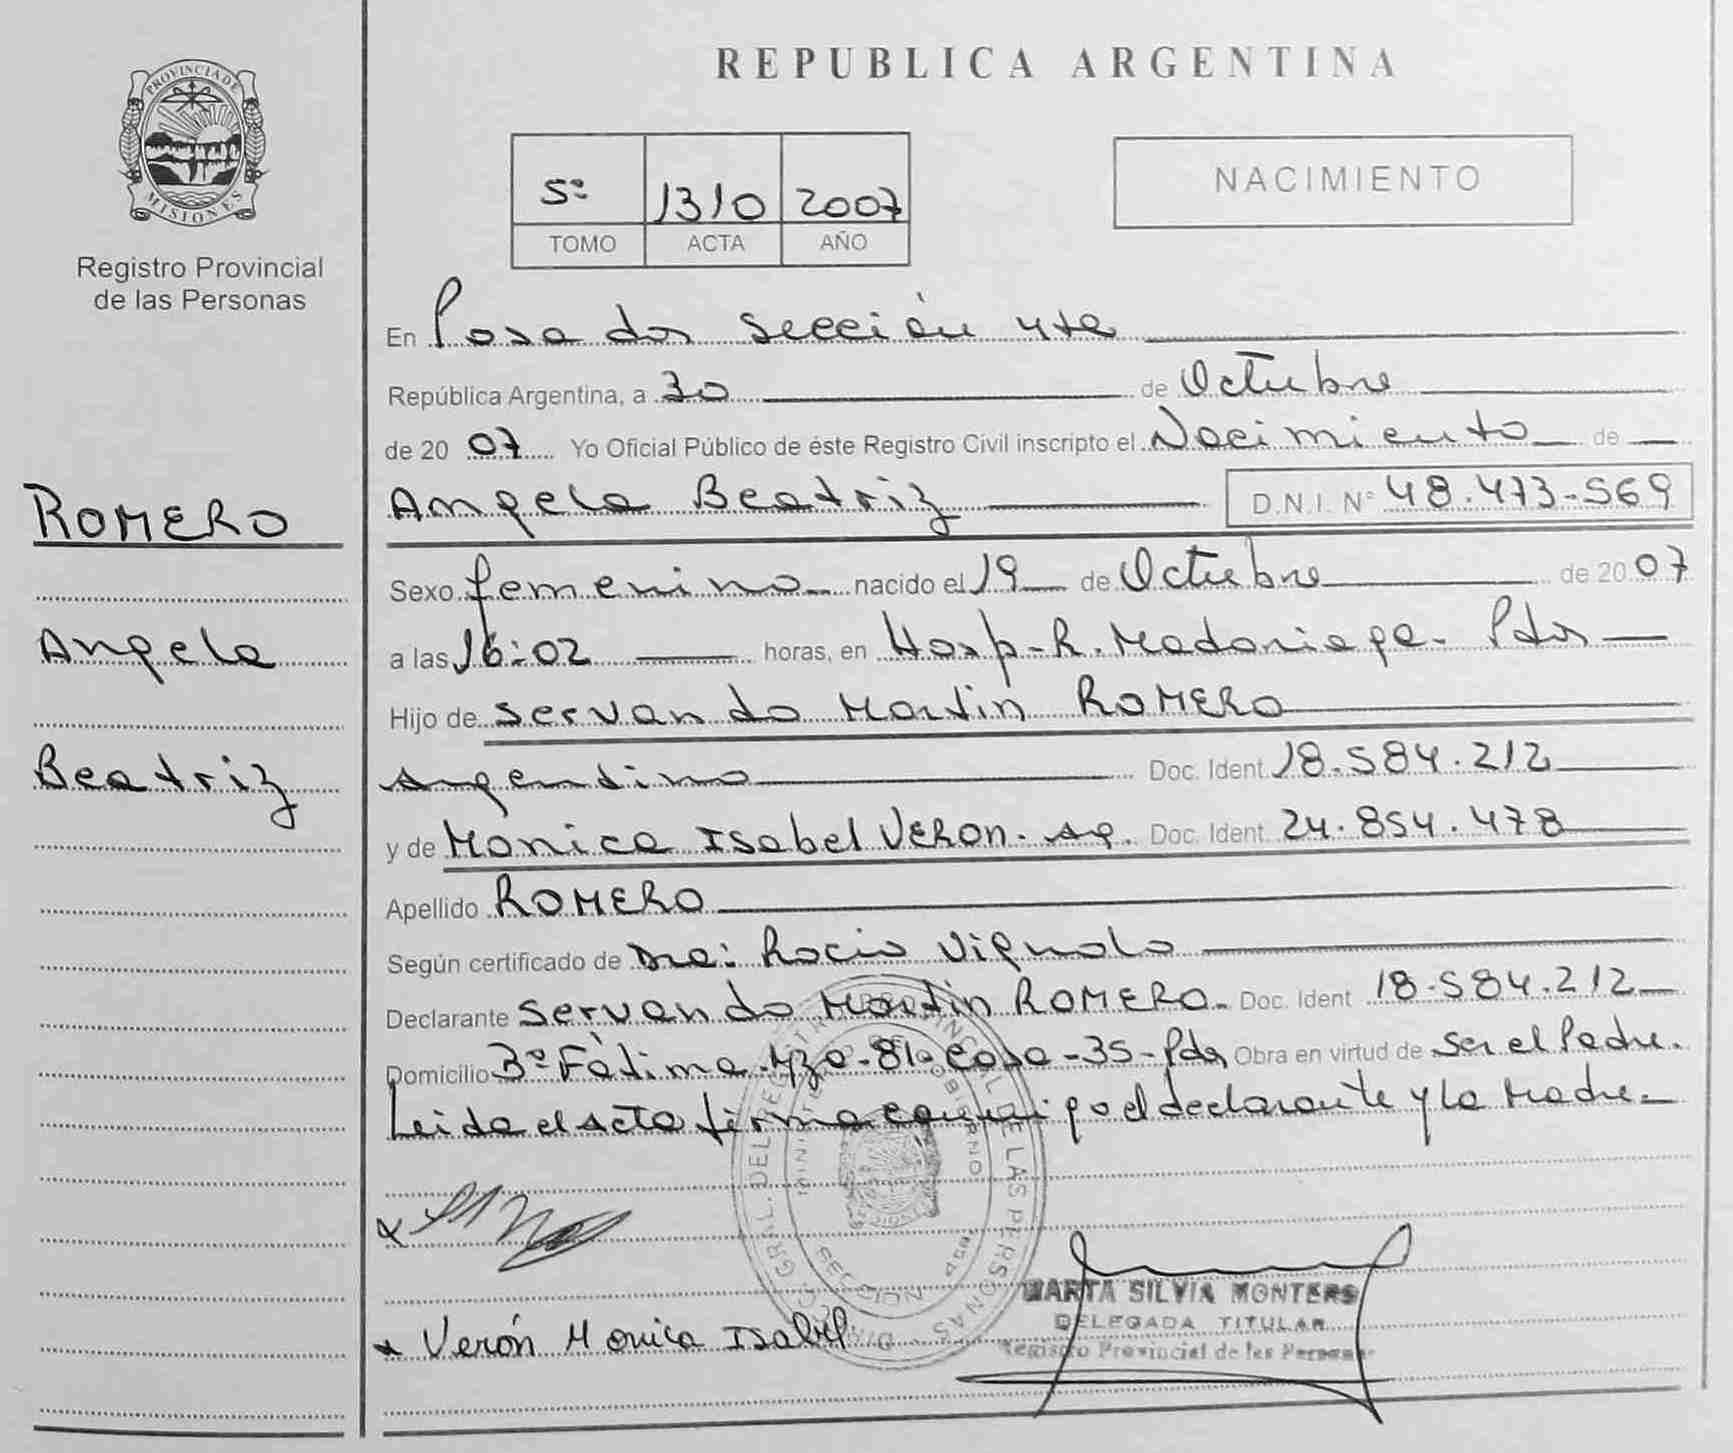 PROVINCIA DE
MISIONES
Registro Provincial
de las Personas
ROMERO
Angela
Beatriz
REPUBLICA ARGENTINA
5º 1310 2007
TOMO ACTA AÑO
NACIMIENTO
En Posadas Sección 4ta
República Argentina, a 30 de Octubre
de 2007 Yo Oficial Público de éste Registro Civil inscripto el Nacimiento de
Angela Beatriz D.N.I. Nº 48.473-569
Sexo femenino nacido el 19 de Octubre de 2007
a las 16:02 horas, en Hosp-R. Madariaga- Pdas
Hijo de Servando Martin ROMERO
Argentino Doc. Ident. 18.584.212
y de Monica Isabel VERON. Ag. Doc. Ident. 24.854.478
Apellido ROMERO
Según certificado de Dra: Rocio Vignolo
Declarante Servando Martin ROMERO- Doc. Ident 18-584.212
Domicilio Bº Fátima-Mza-81-Casa-35-Pdas Obra en virtud de Ser el Padre.
Leida el Acta firma conmigo el declarante y la Madre-
Verón Monica Isabel
MARTA SILVIA MONTERO
DELEGADA TITULAR
Registro Provincial de las Personas
GRAL. DEL REGISTRO PROVINCIAL DE LAS PERSONAS